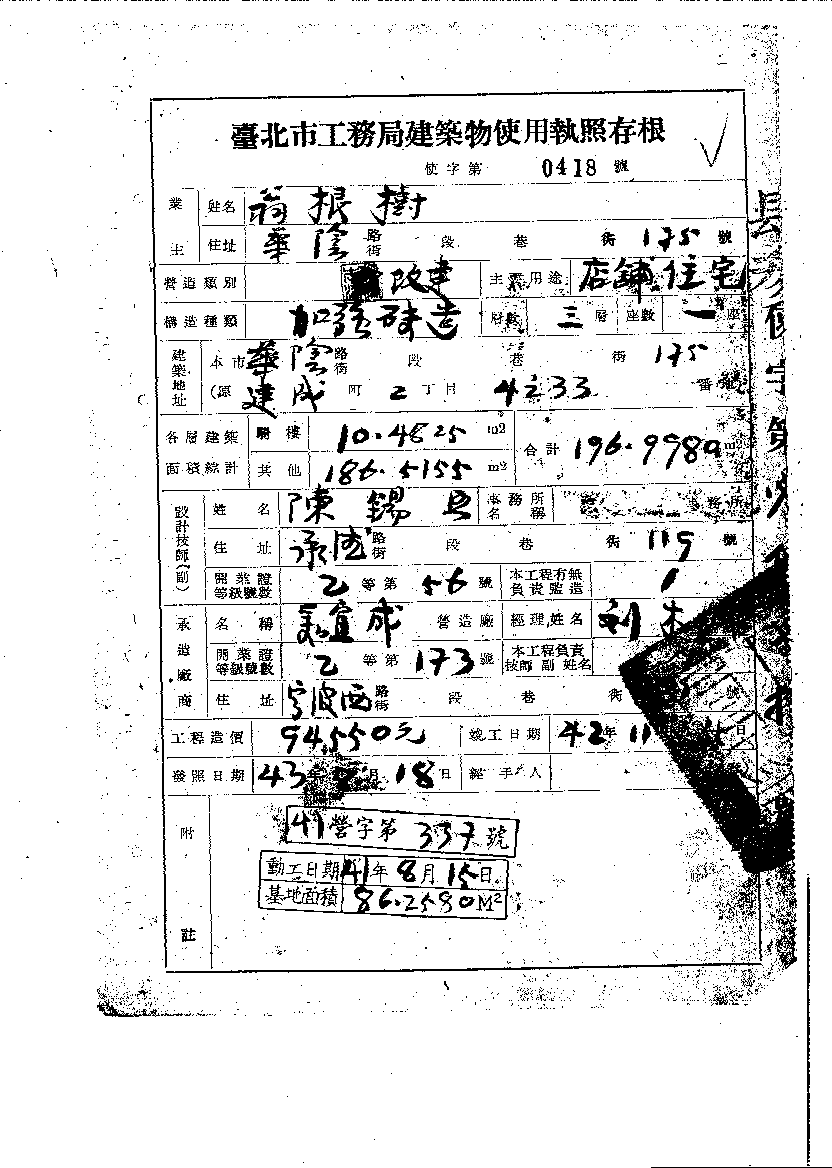 臺北市工務局建築物使用執照存根
使字第 0418 號
業主 姓名 翁根樹
住址 華陰 路街 段 巷 街 175 號
營造類別 改建 主要用途 店舖住宅
構造種類 加強磚造 層數 三層 座數 一座
建築地址 本市 華陰 路街 段 巷 街 175
(原 建成 町 2 丁目 4233 番地
各層建築面積總計 騎樓 10.4825 m2 合計 196.9980 m
其他 186.5155 m2
設計技師(副) 姓名 陳錫 事務所名稱 事務所
住址 承德 路街 段 巷 街 119 號
開業證等級號數 乙等第 56 號 本工程有無負責監造
承造廠商 名稱 宜成 營造廠 經理姓名
開業證等級號數 乙等第 173 號 本工程負責技師副姓名
住址 寧波西 路街 段 巷 街 號
工程造價 94,550元 竣工日期 42年 11 日
發照日期 43年 月 18日 經手人
附註
41營字第 337 號
動工日期 41年 8月 15日
基地面積 86.2580 M2